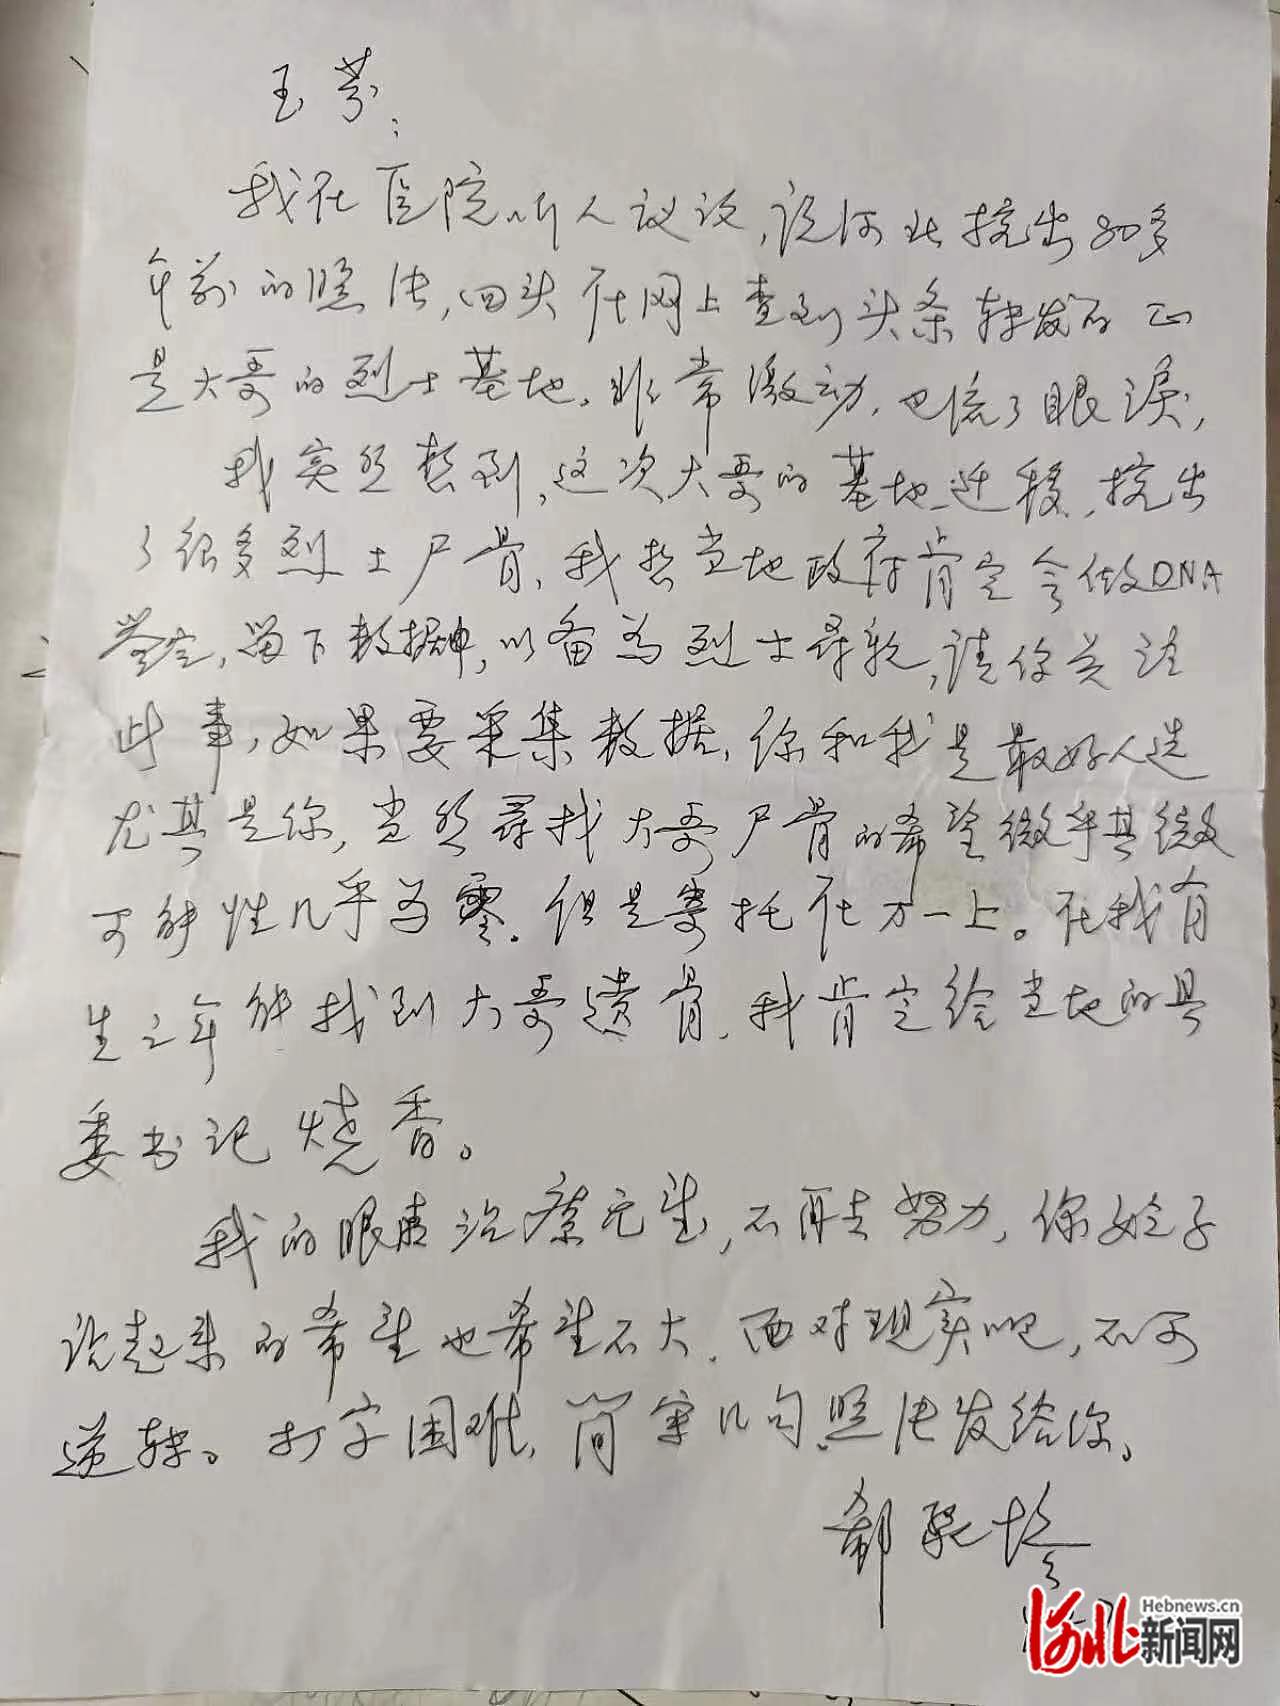 玉芬:
我在医院听人议议,说河北挖出80多
年前的照片,回头在网上查到头条转发的正
是大哥的烈士墓地,非常激动,也流了眼泪,
我突然想到,这次大哥的墓地迁移,挖出
了很多烈士尸骨,我想当地政府肯定会做DNA
鉴定,留下数据,以备为烈士寻亲,请你关注
此事,如果要采集数据,你和我是最好人选
尤其是你,当然寻找大哥尸骨的希望微乎其微
可能性几乎为零.但是寄托在万一上。在我有
生之年能找到大哥遗骨,我肯定给当地的县
委书记烧香。
我的眼睛治疗无望,不再去努力,你婶子
说起来的希望也希望不大.面对现实吧,不可
逆转。打字困难,简单几句照片发给你。
郝
河北新闻网
Hebnews.cn